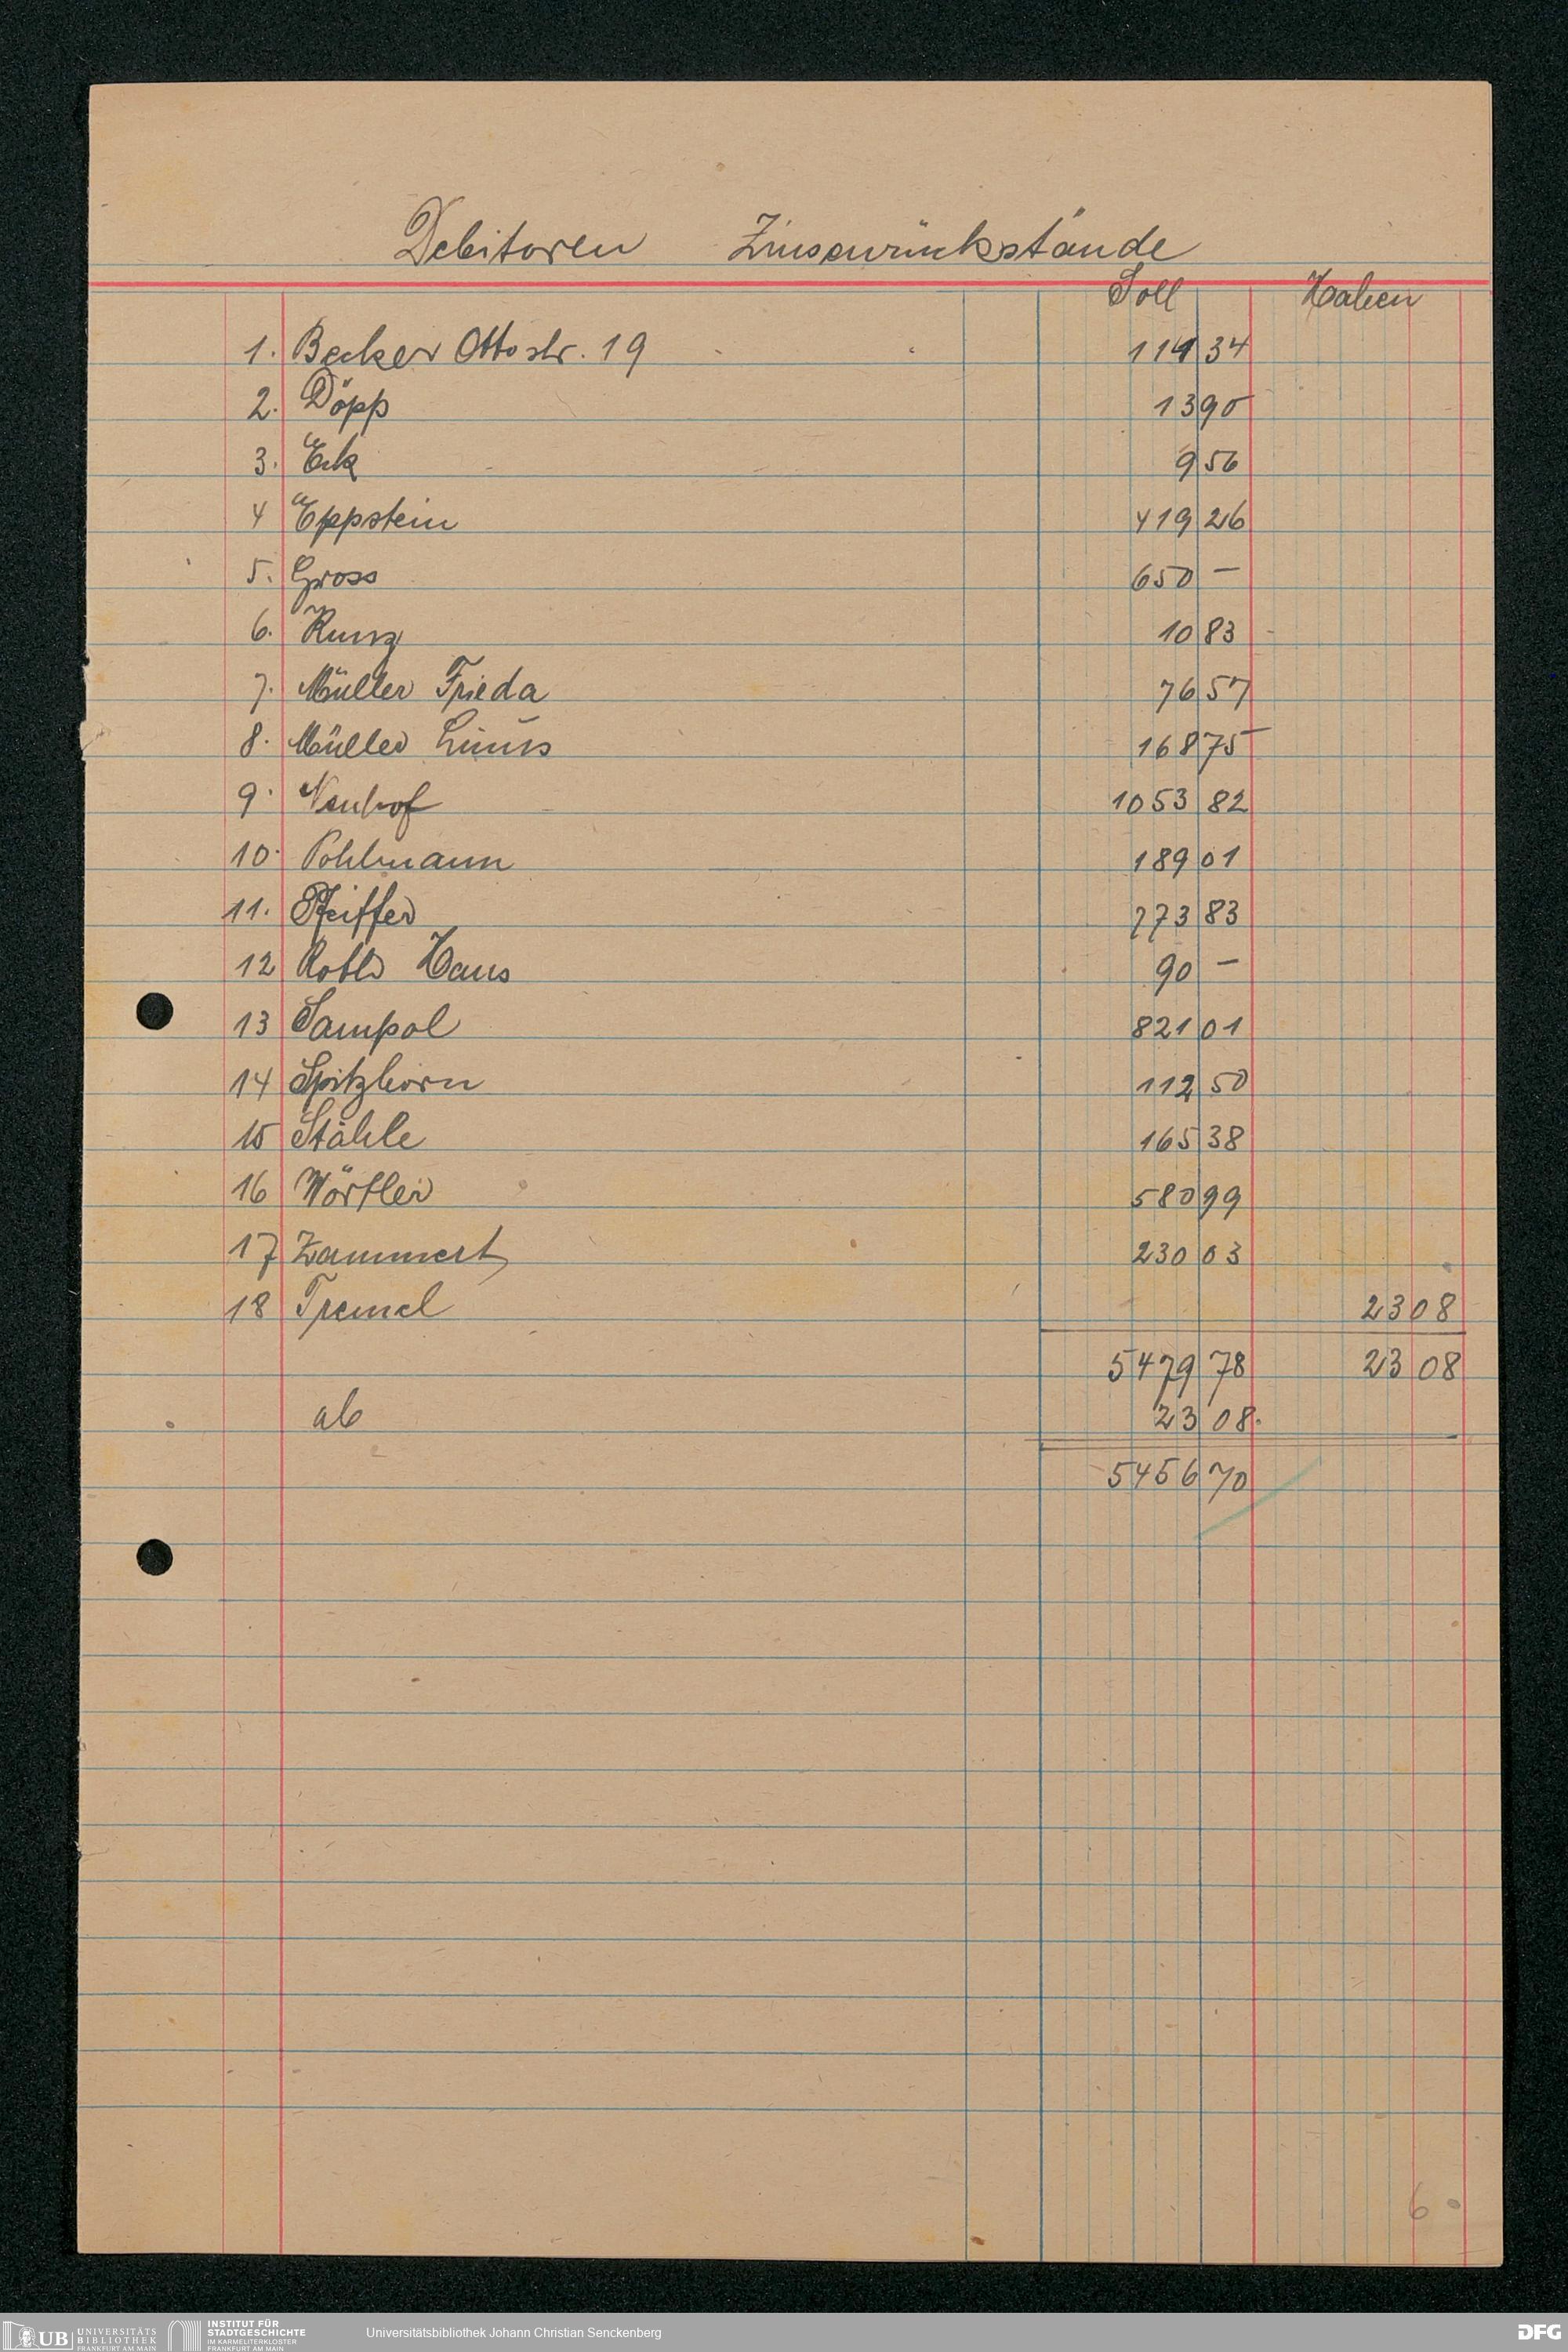 Debitoren Zinsenrückstände
Soll Haben
1. Becker Ottostr. 19 114 34
2. Döpp 13 90
3. Eck 9 56
4 Eppstein 419 26
5. Gross 650 —
6. 10 83
7. Müller Frieda 76 57
8. Müller Linus 168 75
9. Neuhof 1053 82
10. Pohlmann 189 01
11. Pfeiffer 773 83
12 Hans 90 —
13 Sampol 821 01
14 Spitzhorn 112 50
15 Stähle 165 38
16 580 99
17 Zammert 230 03
18 Tremel 23 08
5479 78 23 08
ab 23 08.
5456 70
6
UB UNIVERSITÄTS BIBLIOTHEK FRANKFURT AM MAIN
INSTITUT FÜR STADTGESCHICHTE IM KARMELITERKLOSTER FRANKFURT AM MAIN
Universitätsbibliothek Johann Christian Senckenberg
DFG